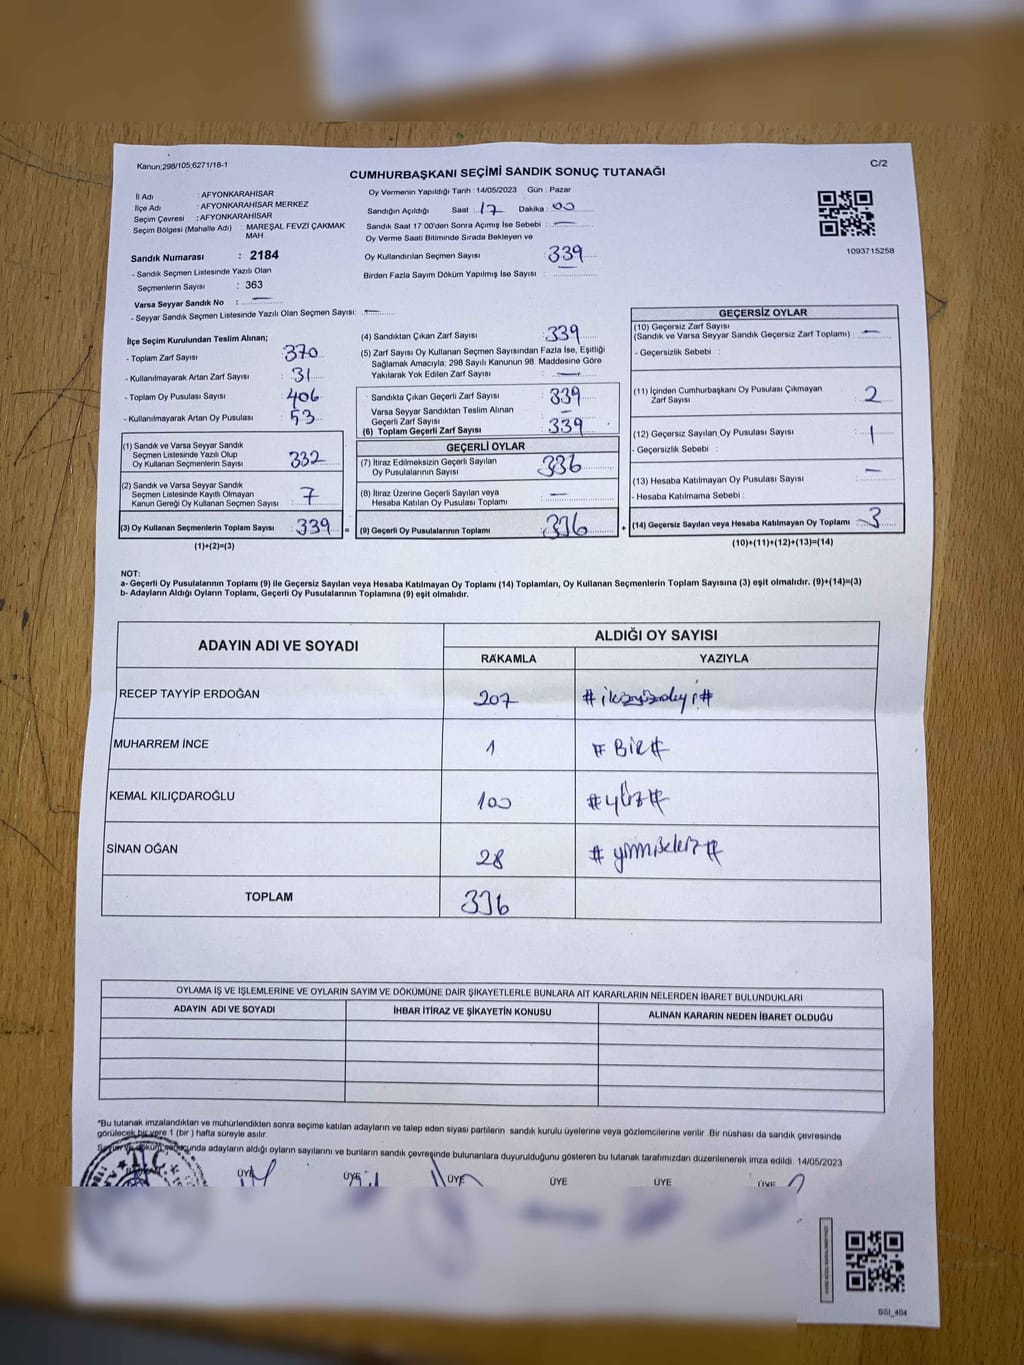 Kanun:298/105,6271/18-1
C/2
CUMHURBAŞKANI SEÇİMİ SANDIK SONUÇ TUTANAĞI
İl Adı : AFYONKARAHİSAR
İlçe Adı : AFYONKARAHİSAR MERKEZ
Seçim Çevresi : AFYONKARAHİSAR
Seçim Bölgesi (Mahalle Adı) : MAREŞAL FEVZİ ÇAKMAK
MAH
Sandık Numarası : 2184
- Sandık Seçmen Listesinde Yazılı Olan
Seçmenlerin Sayısı : 363
Varsa Seyyar Sandık No : —
- Seyyar Sandık Seçmen Listesinde Yazılı Olan Seçmen Sayısı: —
Oy Vermenin Yapıldığı Tarih : 14/05/2023 Gün : Pazar
Sandığın Açıldığı Saat : 17 Dakika : 00
Sandık Saat 17:00'den Sonra Açımış İse Sebebi : —
Oy Verme Saati Bitiminde Sırada Bekleyen ve
Oy Kullandırılan Seçmen Sayısı : 339
Birden Fazla Sayım Döküm Yapılmış İse Sayısı : —
1093715258
İlçe Seçim Kurulundan Teslim Alınan;
- Toplam Zarf Sayısı : 370
- Kullanılmayarak Artan Zarf Sayısı : 31
- Toplam Oy Pusulası Sayısı : 406
- Kullanılmayarak Artan Oy Pusulası : 53
(1) Sandık ve Varsa Seyyar Sandık
Seçmen Listesinde Yazılı Olup
Oy Kullanan Seçmenlerin Sayısı : 332
(2) Sandık ve Varsa Seyyar Sandık
Seçmen Listesinde Kayıtlı Olmayan
Kanun Gereği Oy Kullanan Seçmen Sayısı : 7
(3) Oy Kullanan Seçmenlerin Toplam Sayısı : 339 =
(1)+(2)=(3)
(4) Sandıktan Çıkan Zarf Sayısı : 339
(5) Zarf Sayısı Oy Kullanan Seçmen Sayısından Fazla İse, Eşitliği
Sağlamak Amacıyla; 298 Sayılı Kanunun 98. Maddesine Göre
Yakılarak Yok Edilen Zarf Sayısı : —
Sandıkta Çıkan Geçerli Zarf Sayısı : 339
Varsa Seyyar Sandıktan Teslim Alınan
Geçerli Zarf Sayısı : —
(6) Toplam Geçerli Zarf Sayısı : 339
GEÇERLİ OYLAR
(7) İtiraz Edilmeksizin Geçerli Sayılan
Oy Pusulalarının Sayısı : 336
(8) İtiraz Üzerine Geçerli Sayılan veya
Hesaba Katılan Oy Pusulası Toplamı : —
(9) Geçerli Oy Pusulalarının Toplamı : 336 +
GEÇERSİZ OYLAR
(10) Geçersiz Zarf Sayısı
(Sandık ve Varsa Seyyar Sandık Geçersiz Zarf Toplamı) : —
- Geçersizlik Sebebi :
(11) İçinden Cumhurbaşkanı Oy Pusulası Çıkmayan
Zarf Sayısı : 2
(12) Geçersiz Sayılan Oy Pusulası Sayısı : 1
- Geçersizlik Sebebi :
(13) Hesaba Katılmayan Oy Pusulası Sayısı : —
- Hesaba Katılmama Sebebi :
(14) Geçersiz Sayılan veya Hesaba Katılmayan Oy Toplamı : 3
(10)+(11)+(12)+(13)=(14)
NOT:
a- Geçerli Oy Pusulalarının Toplamı (9) ile Geçersiz Sayılan veya Hesaba Katılmayan Oy Toplamı (14) Toplamları, Oy Kullanan Seçmenlerin Toplam Sayısına (3) eşit olmalıdır. (9)+(14)=(3)
b- Adayların Aldığı Oyların Toplamı, Geçerli Oy Pusulalarının Toplamına (9) eşit olmalıdır.
ADAYIN ADI VE SOYADI
ALDIĞI OY SAYISI
RAKAMLA YAZIYLA
RECEP TAYYİP ERDOĞAN 207 #ikiyüzyedi#
MUHARREM İNCE 1 #Bir#
KEMAL KILIÇDAROĞLU 100 #yüz#
SİNAN OĞAN 28 #yirmisekiz#
TOPLAM 336
OYLAMA İŞ VE İŞLEMLERİNE VE OYLARIN SAYIM VE DÖKÜMÜNE DAİR ŞİKAYETLERLE BUNLARA AİT KARARLARIN NELERDEN İBARET BULUNDUKLARI
ADAYIN ADI VE SOYADI İHBAR İTİRAZ VE ŞİKAYETİN KONUSU ALINAN KARARIN NEDEN İBARET OLDUĞU
*Bu tutanak imzalandıktan ve mühürlendikten sonra seçime katılan adayların ve talep eden siyasi partilerin sandık kurulu üyelerine veya gözlemcilerine verilir .Bir nüshası da sandık çevresinde
görülecek bir yere 1 (bir ) hafta süreyle asılır.
adayların aldığı oyların sayılarını ve bunların sandık çevresinde bulunanlara duyurulduğunu gösteren bu tutanak tarafımızdan düzenlenerek imza edildi. 14/05/2023
ÜYE ÜYE ÜYE ÜYE ÜYE ÜYE
SSI_404